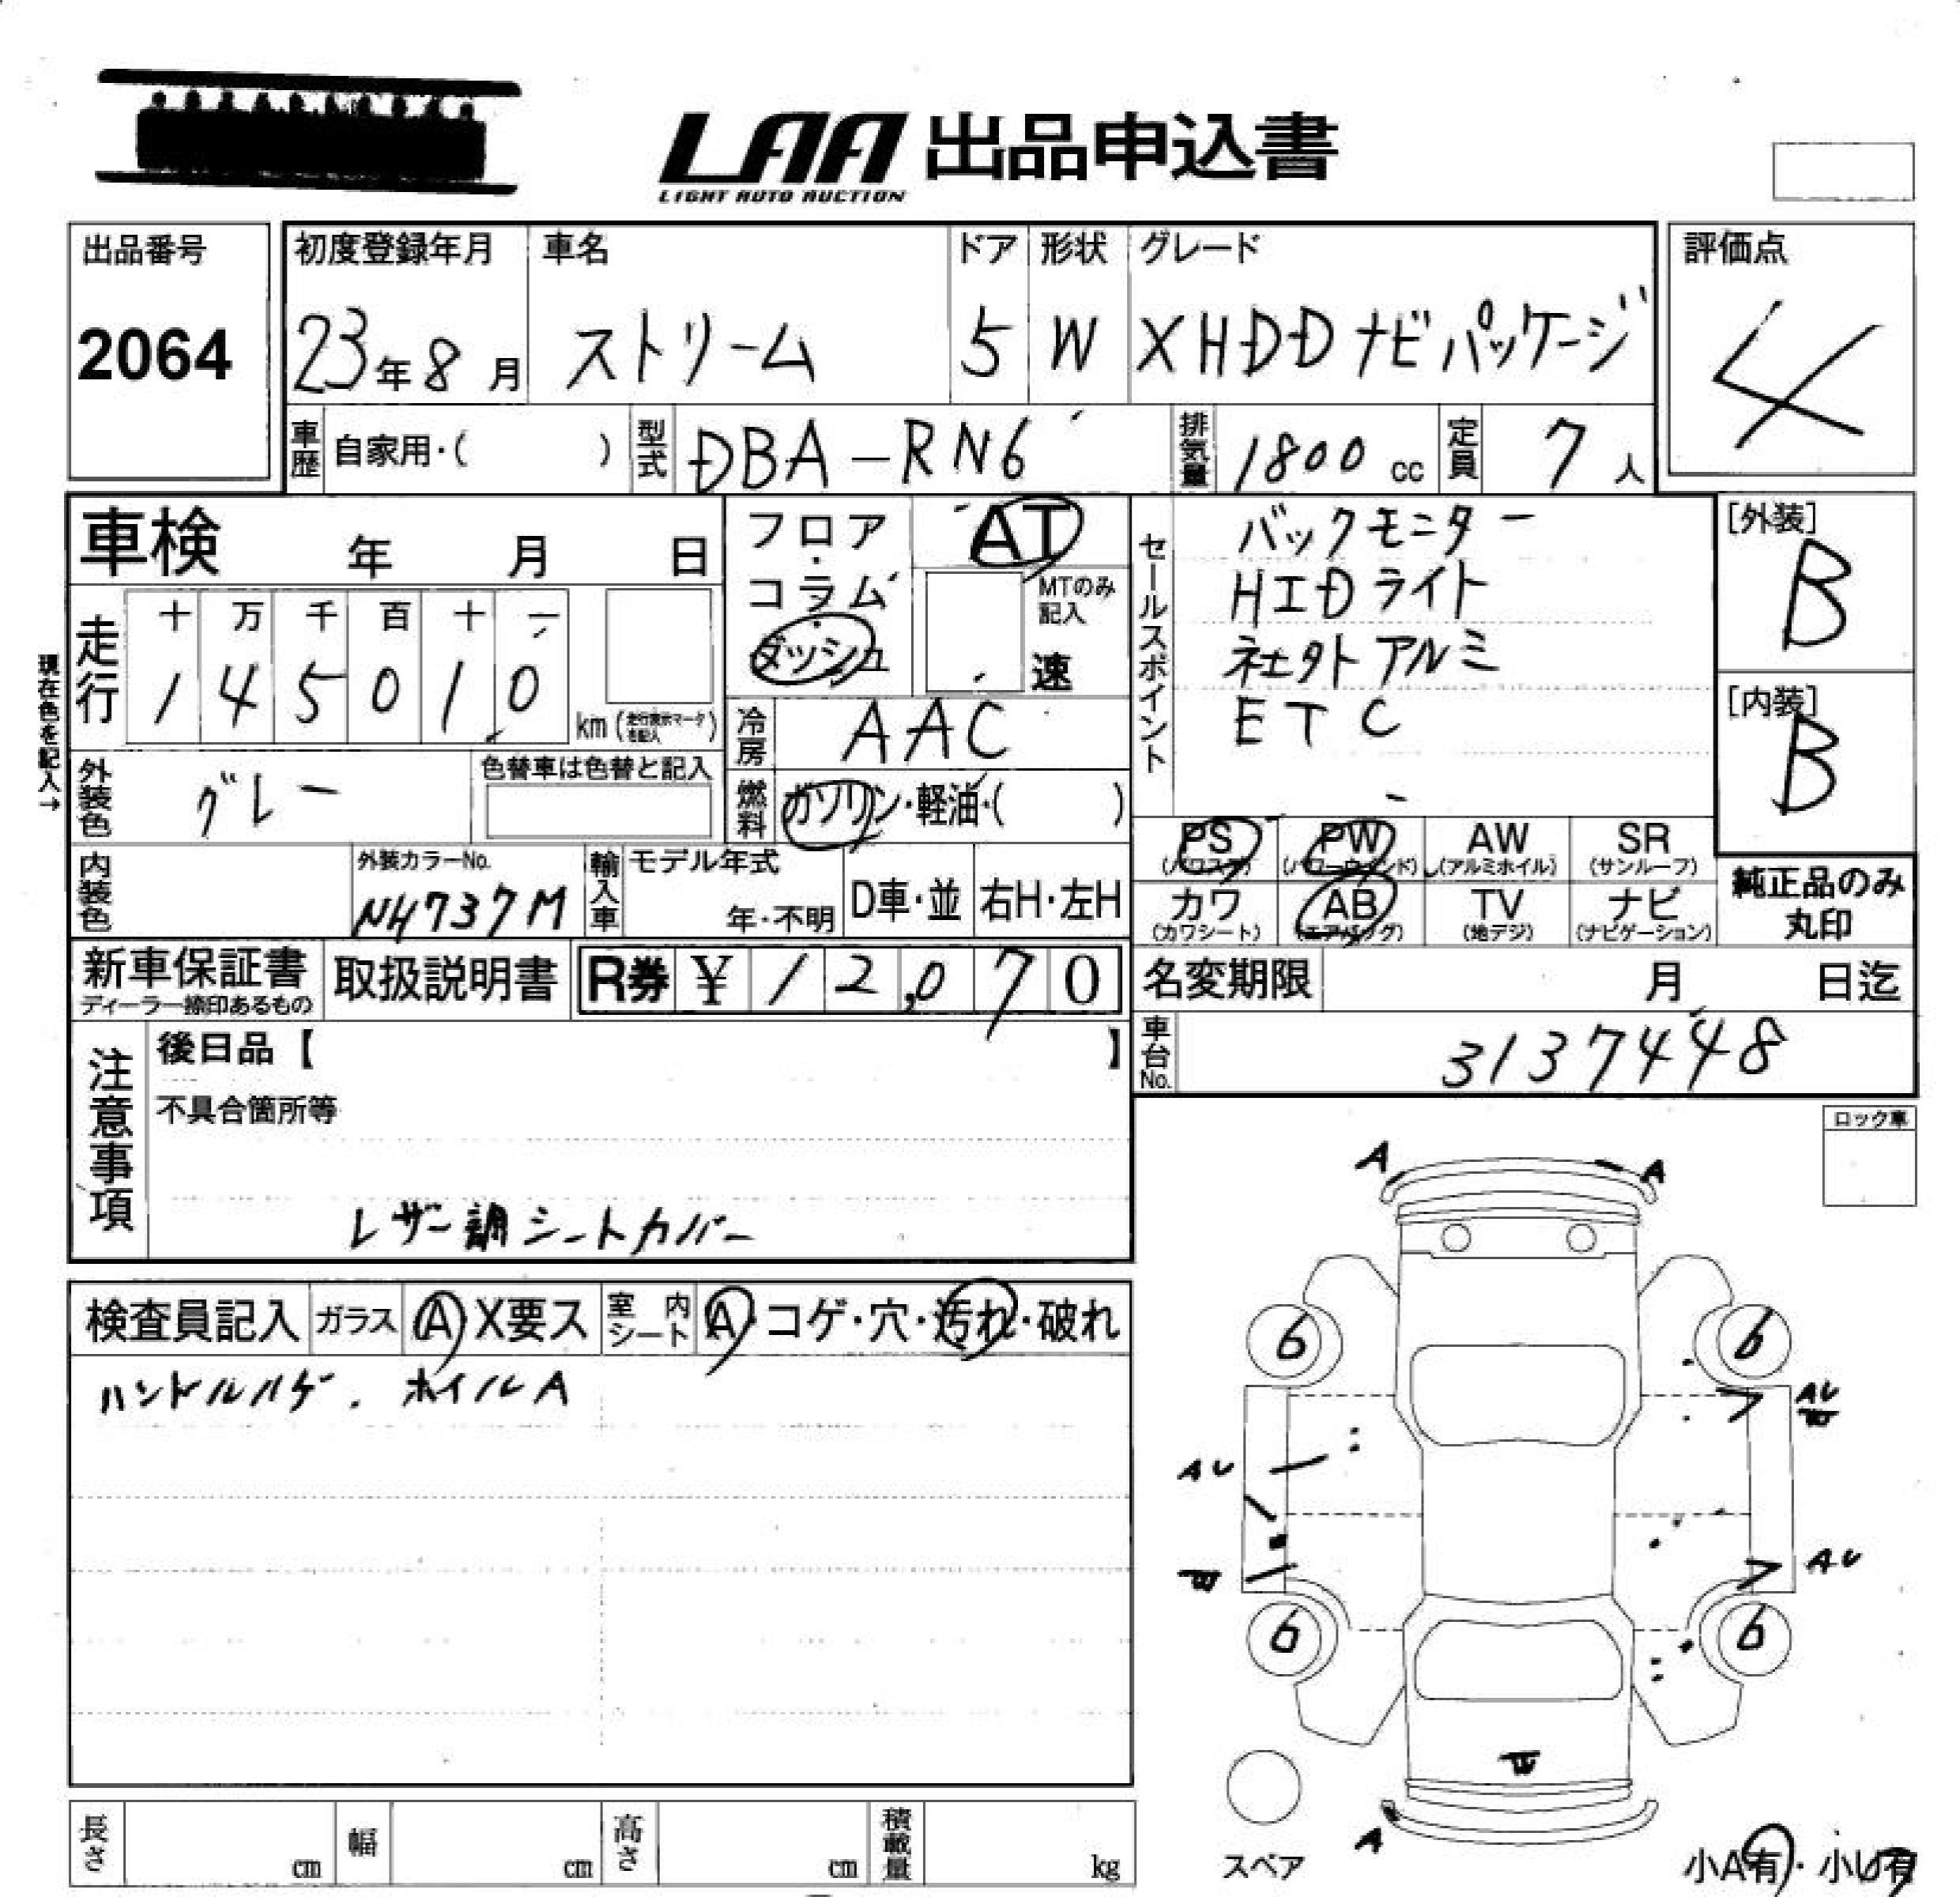 LAA 出品申込書
LIGHT AUTO AUCTION
出品番号 初度登録年月 車名 ドア 形状 グレード 評価点
2064 23年8月 ストリーム 5 W XHDDナビパッケージ 4
車歴 自家用・( ) 型式 DBA-RN6 排気量 1800cc 定員 7人
車検 年 月 日
フロア・コラム・ダッシュ AT
MTのみ記入
速
セールスポイント
バックモニター
HIDライト
社外アルミ
ETC
[外装]
B
[内装]
B
現在色を記入→
走行 十 万 千 百 十 一
1 4 5 0 1 0 km (走行表示マークを記入)
冷房 AAC
外装色 グレー 色替車は色替と記入
燃料 ガソリン・軽油・( )
PS (パワステ) PW (パワーウインド) AW (アルミホイル) SR (サンルーフ)
カワ (カワシート) AB (エアバッグ) TV (地デジ) ナビ (ナビゲーション)
純正品のみ丸印
内装色 外装カラーNo. NH737M 輸入車 モデル年式 年・不明 D車・並 右H・左H
新車保証書 ディーラー捺印あるもの 取扱説明書 R券 ¥12,070 名変期限 月 日迄
車台No. 3137448
注意事項
後日品【 】
不具合箇所等
レザー調シートカバー
ロック車
検査員記入 ガラス A X要ス 室内シート A・コゲ・穴・汚れ・破れ
ハンドルハゲ. ホイルA
A A
6 6
AU
AU
AU
6 6
A
スペア
小A有・小U有
長さ cm 幅 cm 高さ cm 積載量 kg